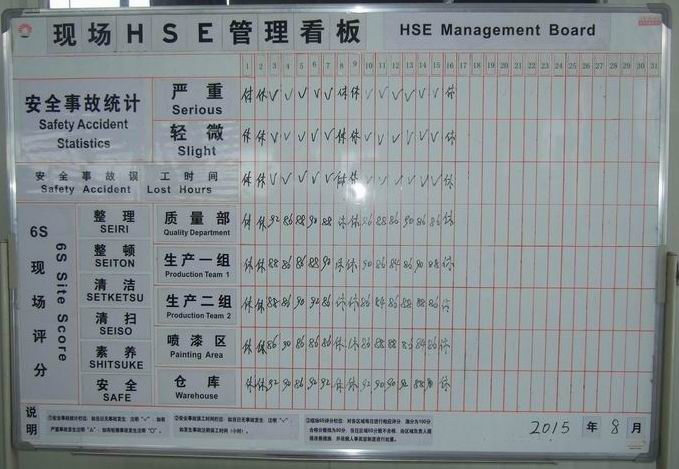 现场HSE管理看板 HSE Management Board
1 2 3 4 5 6 7 8 9 10 11 12 13 14 15 16 17 18 19 20 21 22 23 24 25 26 27 28 29 30 31
安全事故统计
Safety Accident
Statistics
严重
Serious
休 休 √ √ √ √ √ 休 休 √ √ √ √ √ √ 休
轻微
Slight
休 休 √ √ √ √ √ 休 休 √ √ √ √ √ √ 休
安全事故误工时间
Safety Accident Lost Hours
休 休 √ √ √ √ √ 休 休 √ √ √ √ √ √ 休
6S现场评分
6S Site Score
整理
SEIRI
质量部
Quality Department
休 休 92 86 88 90 88 休 休 86 88 86 90 86 86 休
整顿
SEITON
生产一组
Production Team 1
休 休 88 86 86 88 90 休 休 90 86 84 86 90 88 休
清洁
SETKETSU
生产二组
Production Team 2
休 休 88 86 90 92 86 休 休 86 84 86 88 88 86 休
清扫
SEISO
喷漆区
Painting Area
休 休 86 90 86 86 86 休 休 86 88 88 86 84 86 休
素养
SHITSUKE
安全
SAFE
仓库
Warehouse
休 休 92 90 86 92 92 休 休 92 90 90 92 88 休
说明
2015 年 8 月